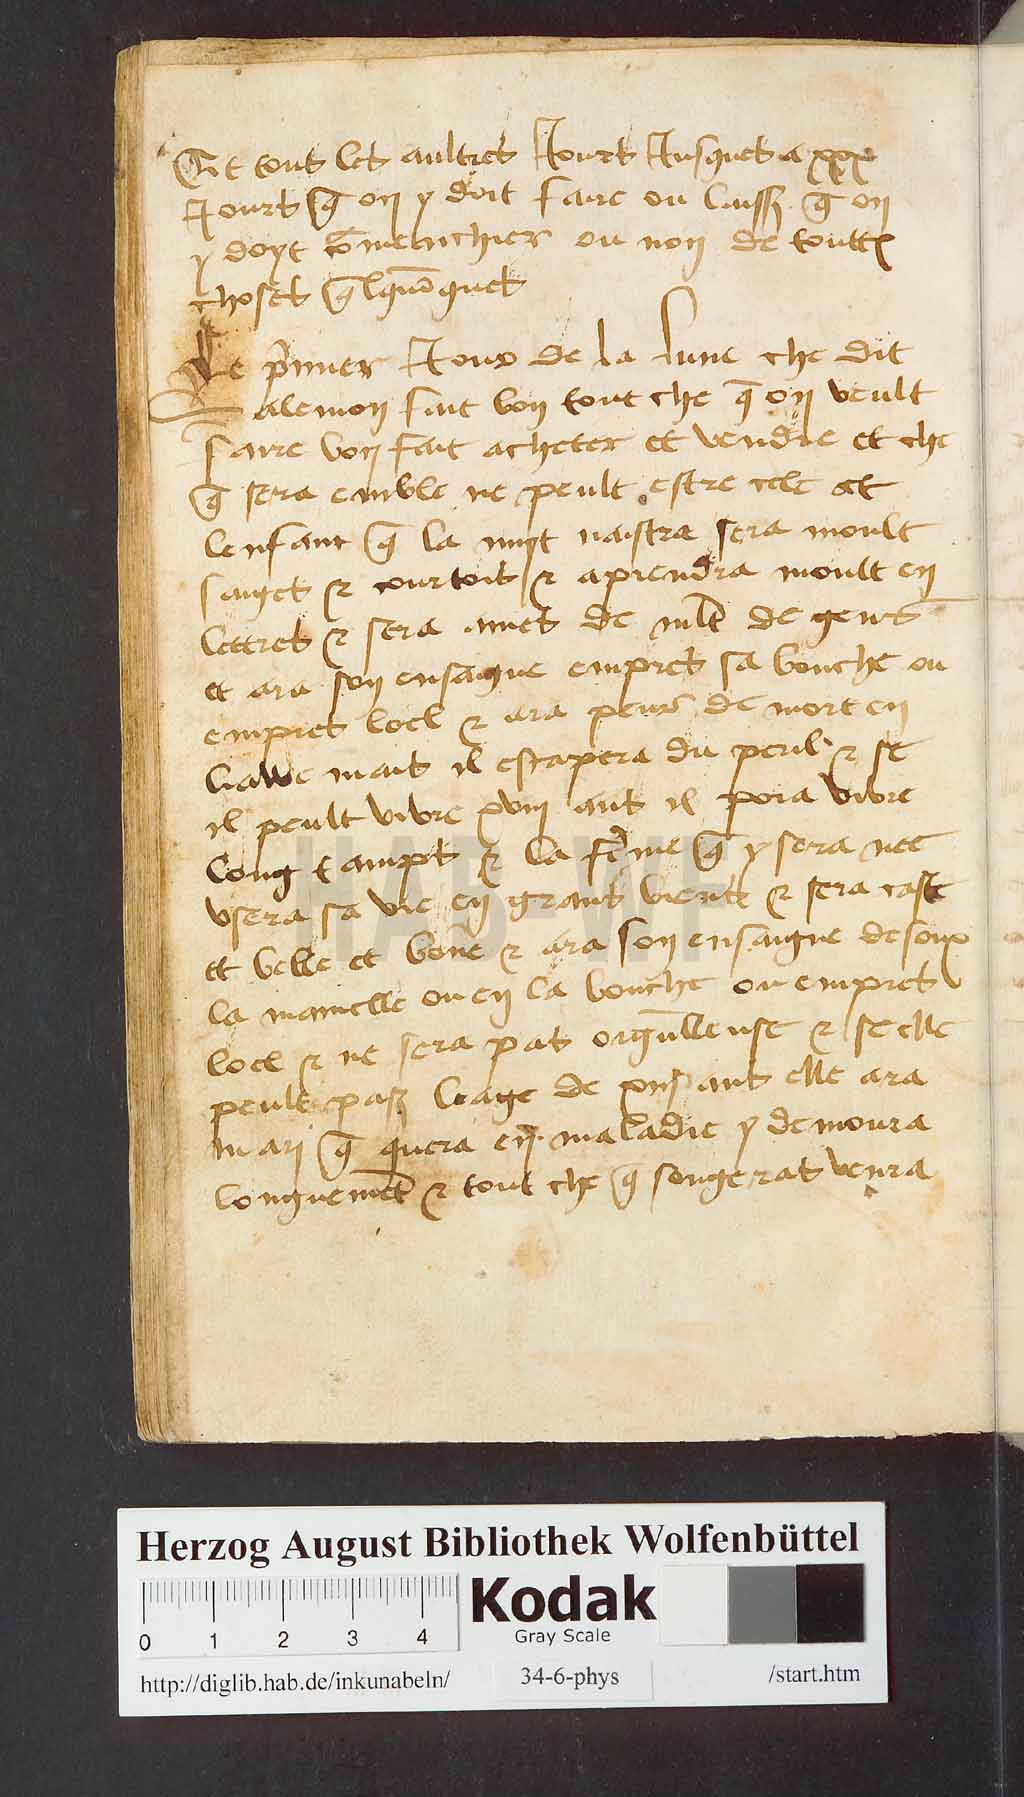 Et tous les aultres Jours Jusques a xxx
Jours q̄ on y doit faire ou laiss̄ q̄ on
y doyt cōmenchier ou non de touttes
choses q̄lqūques
Le p̄mier Jour de la lune che dit
alemon fait bon tout che q̄ on veult
faire bon fait acheter et vendre et che
q̄ sera emble ne peult estre cele et
lenfant q̄ la nuyt naistra sera moult
saiges & courtois & aprendra moult en
lettres & sera ames de mlt de gens
et ara son ensaigne empres sa bouche ou
empres loel & ara peur de mort en
liawe mais il escapera du peril & se
il peult vivre xviii ans il pora vivre
long tamps & la fēme q̄ y sera nee
vsera sa vie en grans biens & sera caste
et belle et bōne & ara son ensaigne desoux
la mamelle ou en la bouche ou empres
loel & ne sera pas orgūlleuse & se elle
peult pass̄ leage de ans elle ara
mari q̄ quera en maladie y demoura
longuemēt & tout che q̄ songeras venra
HAB-WF
Herzog August Bibliothek Wolfenbüttel
0 1 2 3 4
Kodak
Gray Scale
http://diglib.hab.de/inkunabeln/ 34-6-phys /start.htm